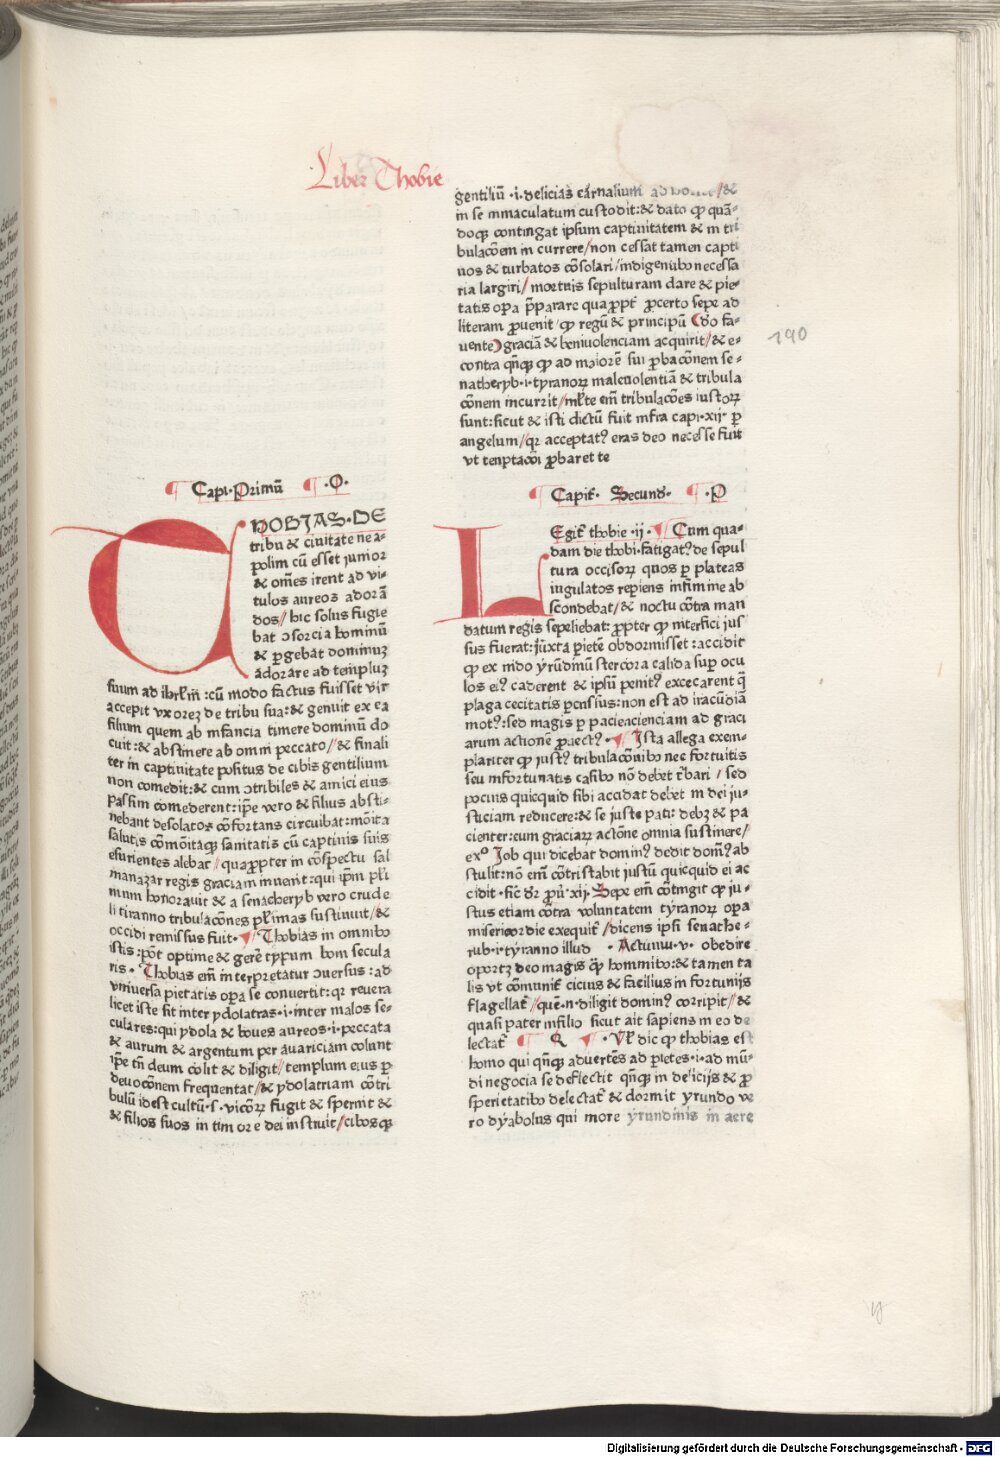 Liber Thobie
Capi·Primū ·O·
THOBIAS·DE
tribu & ciuitate nea-
polim cū esset junior
& om̄es irent ad vi-
tulos aureos adorā
dos/ hic solus fugie
bat ↄsorcia hominū
& pergebat dominuz
adorare ad templuz
suum ad ihrl̄m̄ :cū modo factus fuisset vir
accepit vxorez de tribu sua:& genuit ex ea
filium quem ab infancia timere dominū do
cuit:& abstinere ab omni peccato/& finali
ter in captiuitate positus de cibis gentilium
non comedit:& cum ↄtribiles & amici eius
passim comederent:ip̄e vero & filius absti-
nebant desolatos cōfortans circuibat:mōita
salutis cōmōitaqꝫ sanitatis cū captiuis suis
esurientes alebat/quaꝓpter in cōspectu sal
manazar regis graciam inuenit:qui ip̄m pl̄i
mum honorauit & a senacheryb vero crude
li tiranno tribulacōnes pl̄imas sustinuit/&
occidi remissus fuit· Thobias in omnibo
istis :pōt optime & gerē typum hom secula
ris· Thobias em̄ interp̄etatur ↄuersus :ad
vniuersa pietatis opa se conuertit:qr reuera
licet iste sit inter ydolatras·i·inter malos se-
culares:qui ydola & boues aureos·i·peccata
& aurum & argentum per auariciam colunt
ip̄e tn̄ deum colit & diligit/templum eius p̱
deuocōnem frequentat/& ydolatriam cōtri
bulū idest cultū·s·vicoꝝ fugit & spernit &
& filios suos in timore dei instruit/cibosqꝫ
gentiliū ·i·delicias carnalium /&
in se immaculatum custodit:& dato ꝙ quā-
doqꝫ contingat ipsum captiuitatem & in tri
bulacōem incurrere/non cessat tamen capti
uos & turbatos cōsolari/indigentibo necessa
ria largiri/ mortuis sepulturam dare & pie-
tatis opa p̄parare quaꝓpt̄ ꝓcerto sepe ad
literam ꝓuenit/ꝙ regū & principū (do fa-
uente)graciā & beniuolenciam acquirit/& e-
contra qn̄qꝫ ꝙ ad maiorē sui ꝓbacōnem se-
natheryb·i·tyranoꝝ maleuolentiā & tribula
cōnem incurrit/ml̄te em̄ tribulacōes iustoꝝ
sunt:sicut & isti dictū fuit infra capi·xij· p̱
angelum/qr acceptatꝰ eras deo necesse fuit
vt temptacōi ꝓbaret te
Capit̄· Secund· ·P
LEgit̄ thobie·ij· Cum qua-
dam die thobi·fatigatꝰ de sepul
tura occisoꝝ quos p̱ plateas
iugulatos repiens infinime ab
scondebat/& noctu cōtra man
datum regis sepeliebat: ꝓpter ꝙ interfici jus
sus fuerat:juxta pietē obdormisset :accidit
ꝙ ex nido yrūdinū stercora calida sup ocu
los eiꝰ caderent & ipsū penitꝰ excecarent q̄
plaga cecitatis p̱cussus:non est ad iracūdiā
motꝰ:sed magis p̱ pacienciam ad graci
arum actionē ꝓuectꝰ· Ista allega exem-
plariter ꝙ justꝰ tribulacōnibo nec fortuitis
seu infortunatis casibo nō debet t̄bari / sed
pocius quicquid sibi accidat debet in dei ju-
sticiam reducere:& se juste pati: debꝫ & pa
cienter:cum graciaꝝ actōne omnia sustinere/
exº Job qui dicebat dominꝰ dedit domꝰ ab
stulit:nō em̄ cōtristabit justū quicquid ei ac
cidit·sic dr̄ ꝓū·xij· Sepe em̄ cōtingit ꝙ ju-
stus etiam cōtra voluntatem tyranoꝝ opa
misericordie exequit̄/dicens ipsi senathe-
rub·i·tyranno illud ·Actiuu·v· obedire
oportꝫ deo magis q̄ꝫ hominibo:& tamen ta
lis vt cōmunit̄ cicius & facilius in fortunijs
flagellat̄/quē·n·diligit dominꝰ corripit/&
quasi pater in filio sicut ait sapiens in eo de
lectat̄ Q ·Vl̄ dic ꝙ thobias est
homo qui qn̄qꝫ aduertēs ad pietes·i·ad mū-
di negocia se deflectit qn̄qꝫ in delicijs & ꝓ
speritatibo delectat̄ & dormit yrundo ve
ro dyabolus qui more yrundinis in aere
190
Digitalisierung gefördert durch die Deutsche Forschungsgemeinschaft · DFG